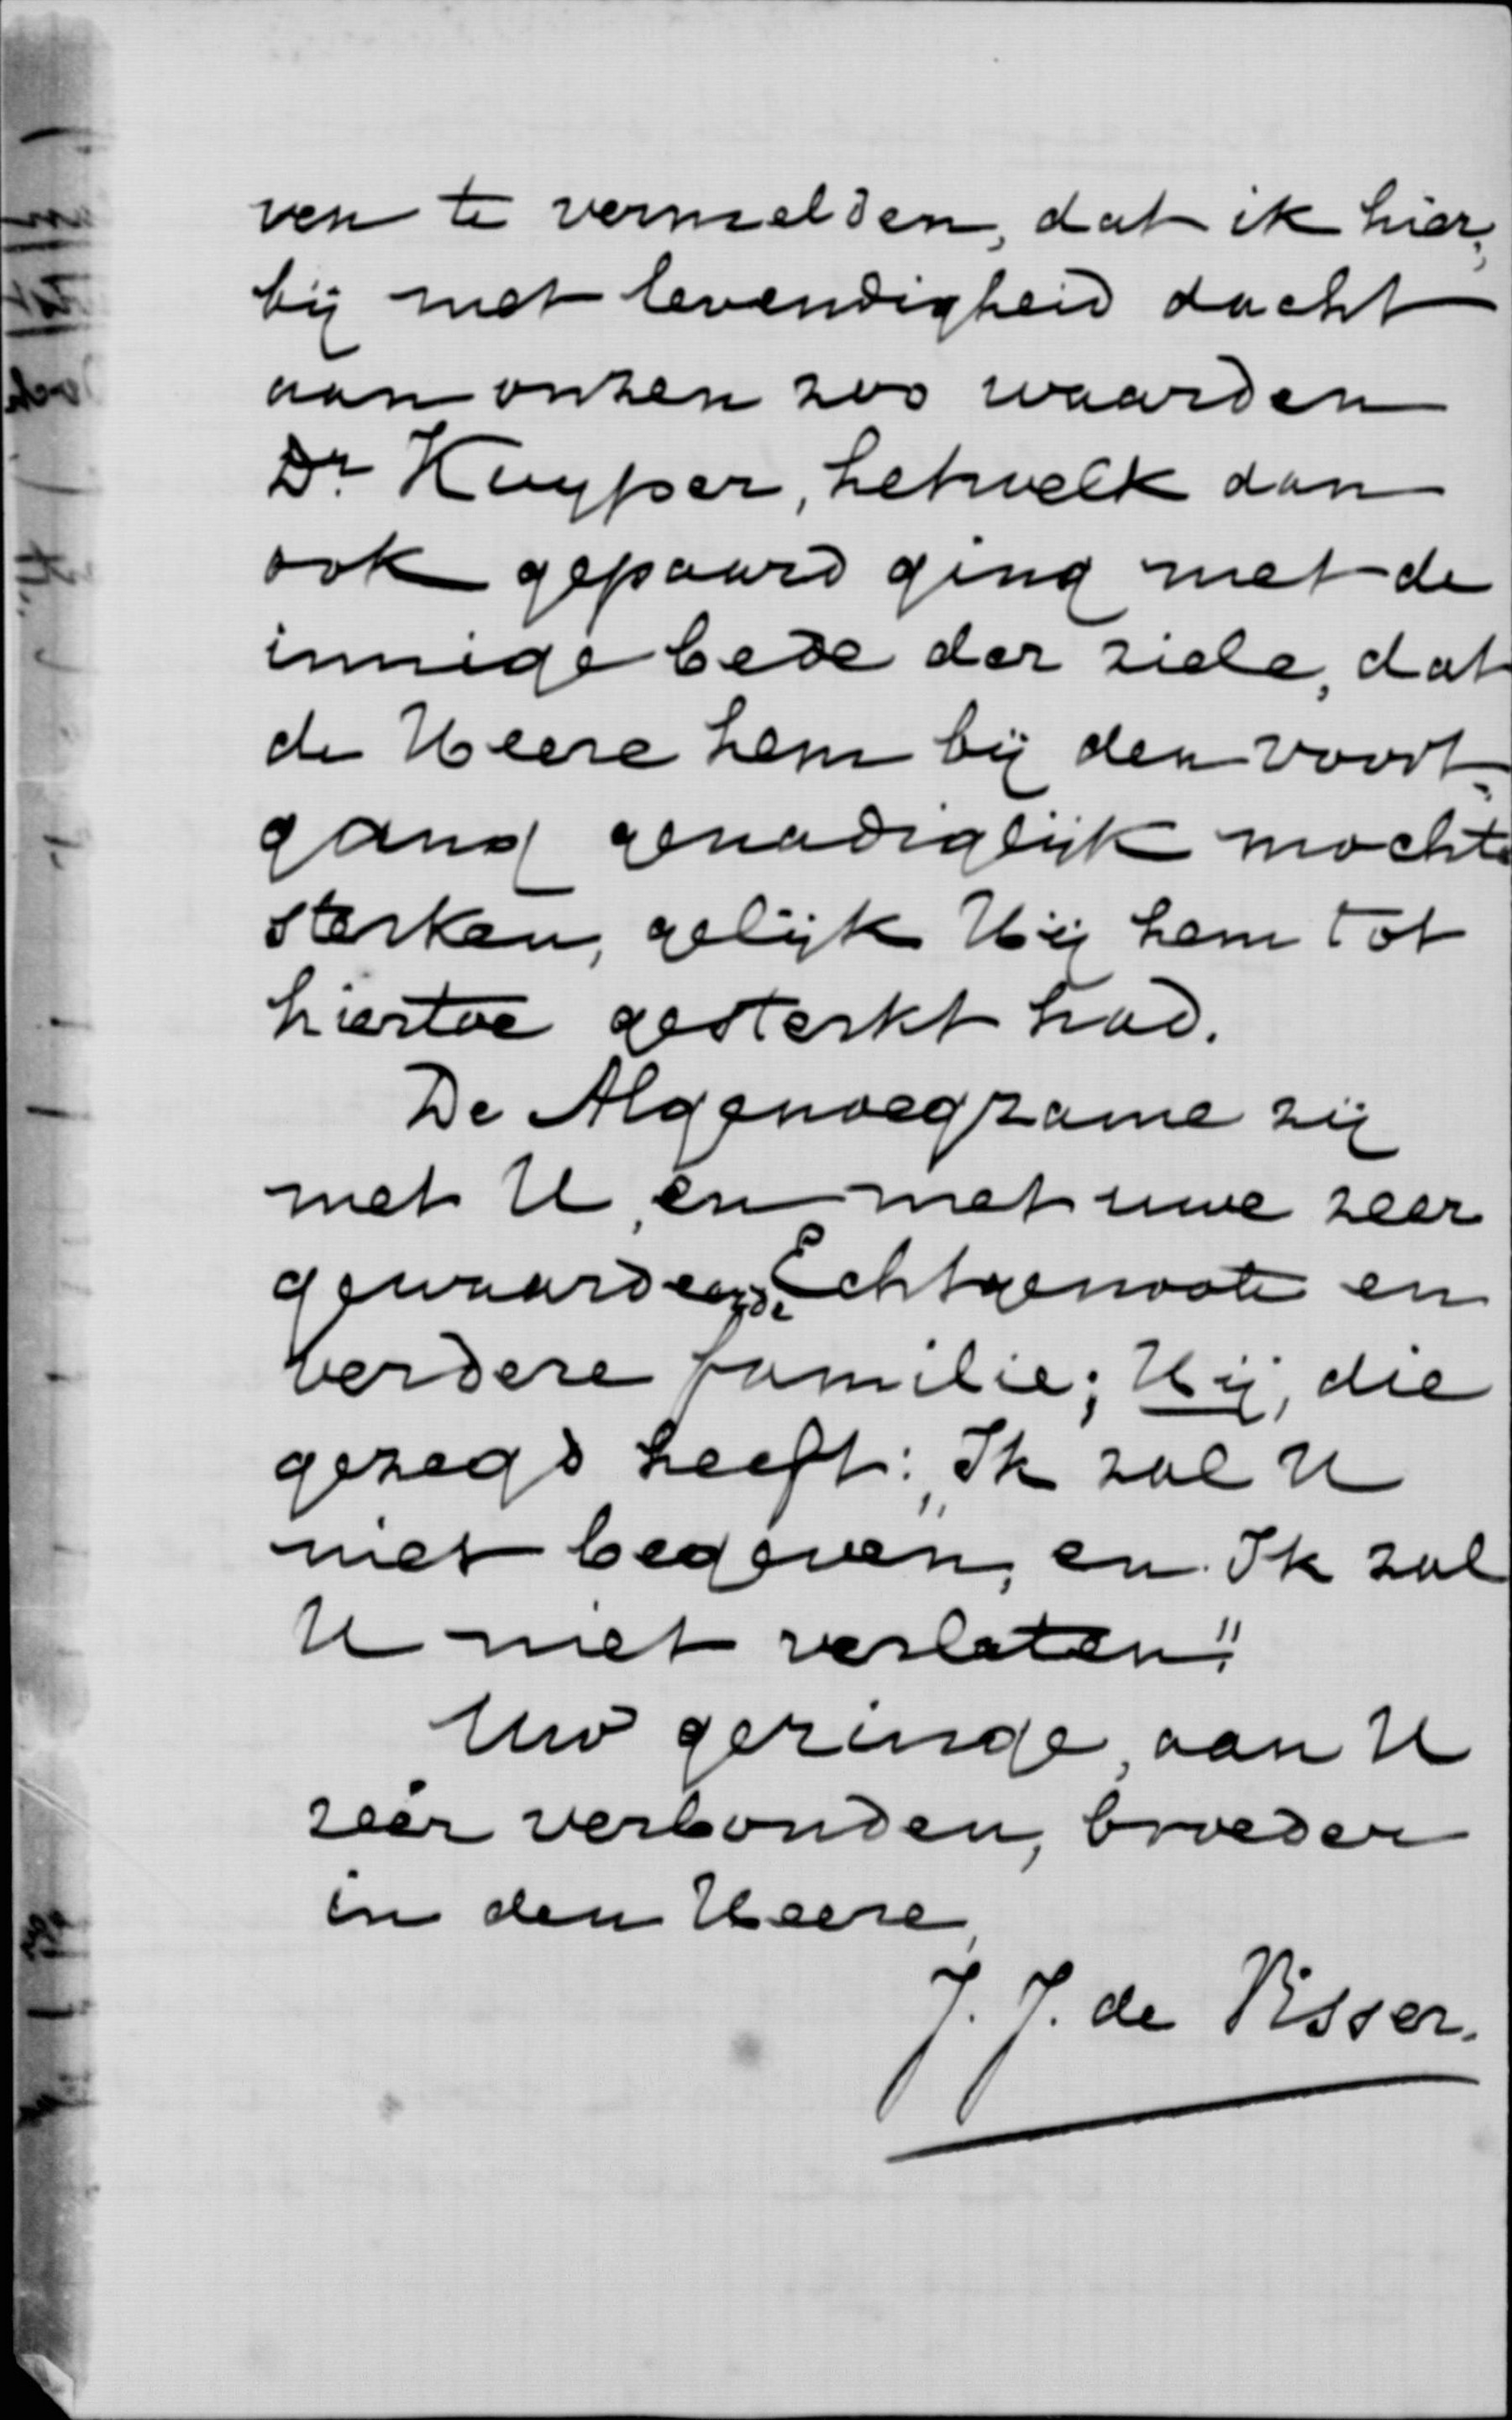 ven te vermelden, dat ik hier-
bij met levendigheid dacht
aan onzen zoo waarden
Dr Kuyper, hetwelk dan
ook gepaard ging met de
innige bede der ziele, dat
de Heere hem bij den voort-
gang genadiglijk mochte
sterken, gelijk Hij hem tot
hiertoe gesterkt had.
De Algenoegzame zij
met U, en met uwe zeer
gewaardeerde Echtgenoote en
verdere familie; Hij, die
gezegd heeft: „Ik zal U
niet begeven, en Ik zal
U niet verlaten".
Uw geringe, aan U
zéér verbonden, broeder
in den Heere,
J. J. de Visser.